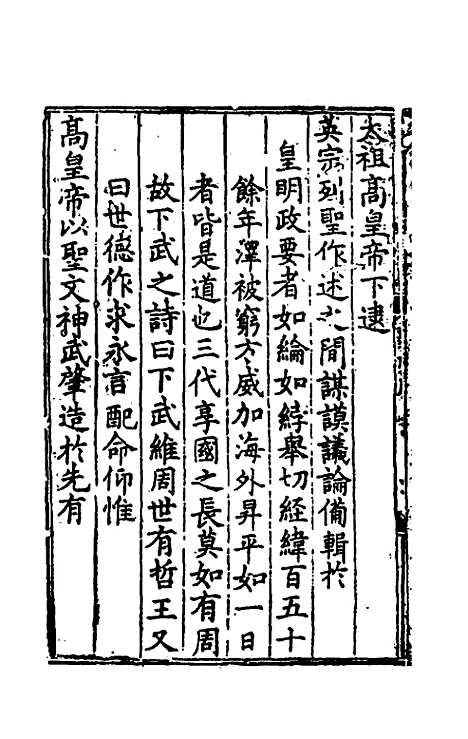 太祖高皇帝下逮
英宗列聖作述之間謀謨議論備輯於
皇明政要者如綸如綍舉切経緯百五十
餘年澤被窮方威加海外昇平如一日
者皆是道也三代享國之長莫如有周
故下武之詩曰下武維周世有哲王又
曰世德作求永言配命仰惟
高皇帝以聖文神武肇造於先有